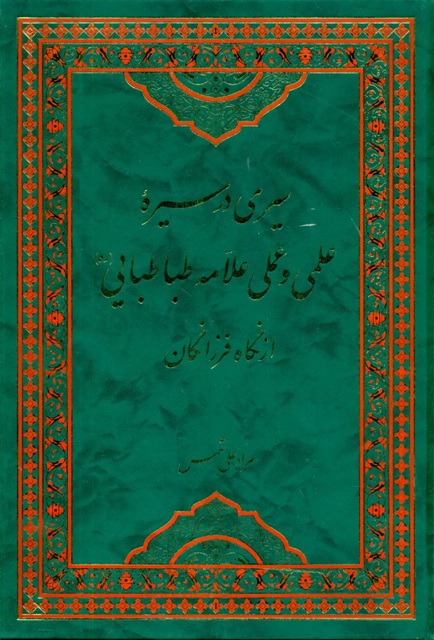 سیری در سیرهٔ
علمی و عملی علامه طباطبایی (ره)
از نگاه فرزانگان
مراد علی شمس